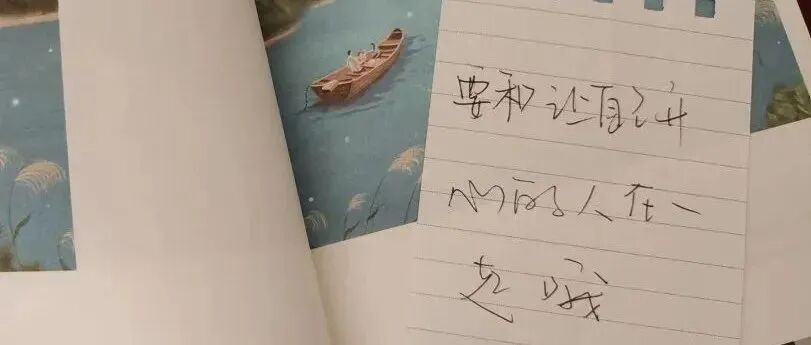 要和让自己开
心的人在一
起哦